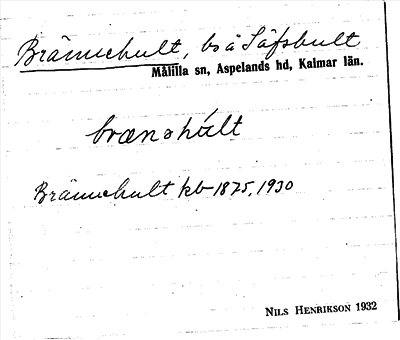 Brännehult, bs å Säfshult
Målilla sn, Aspelands hd, Kalmar län.
brænəhúlt
Brännehult kb 1875, 1930
NILS HENRIKSON 1932